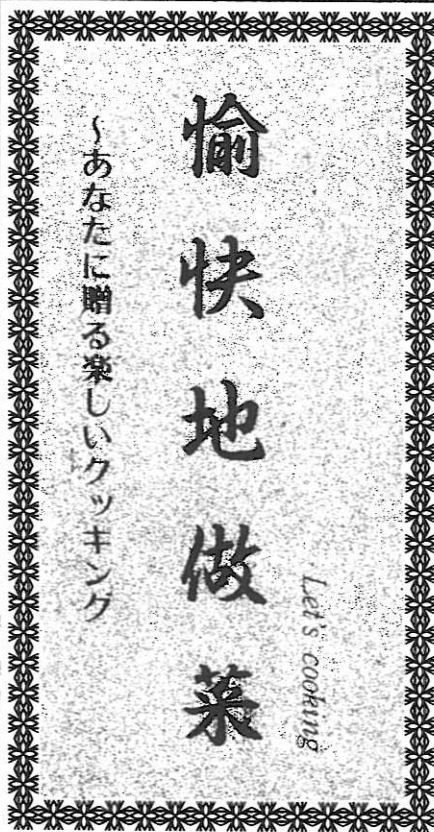 Let's cooking
愉快地做菜
~あなたに贈る楽しいクッキング